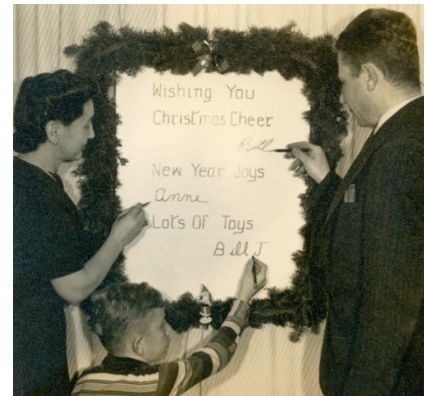 Wishing You
Christmas Cheer
Bill
New Year Joys
Anne
Lots Of Toys
Bill J